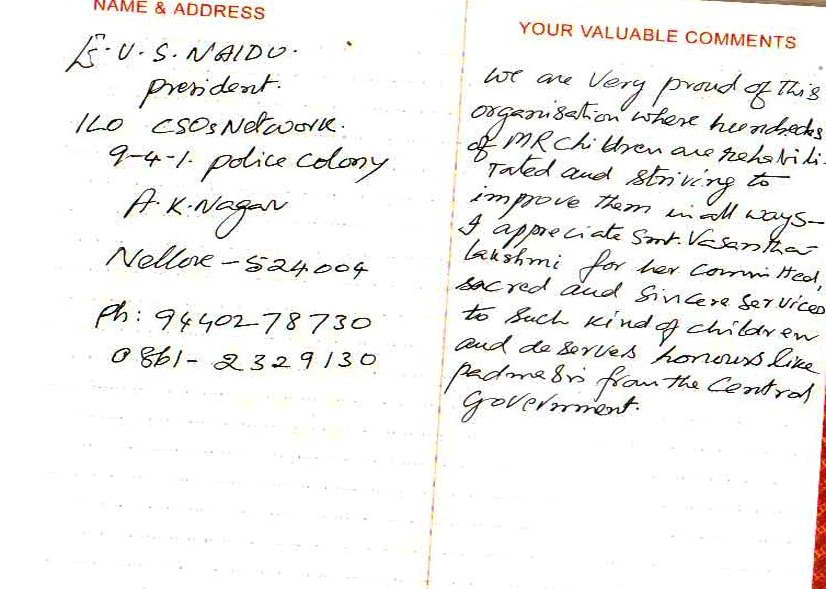 NAME & ADDRESS
U. S. NAIDU.
president.
ILO CSOs Network.
9-4-1. police colony
A. K. Nagar
Nellore - 524004
Ph: 9440278730
0861- 2329130
YOUR VALUABLE COMMENTS
We are Very proud of This
organisation where hundreds
of MR Children are rehabili-
Tated and Striving to
improve them in all ways-
I appreciate Smt. Vasantha
Lakshmi for her Committed,
sacred and Sincere Services
to Such Kind of children
and deserves honours like
padmasri from the Central
Government.